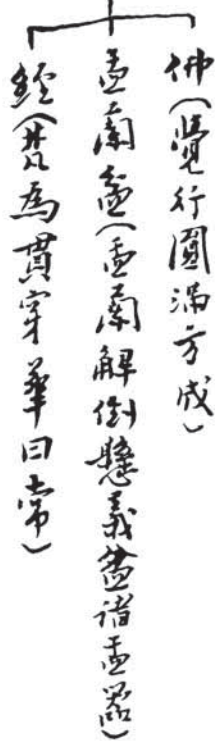 佛(覺行圓滿方成)
盂蘭盆(盂蘭解倒懸義盆諸盂器)
經(梵為貫穿華曰常)